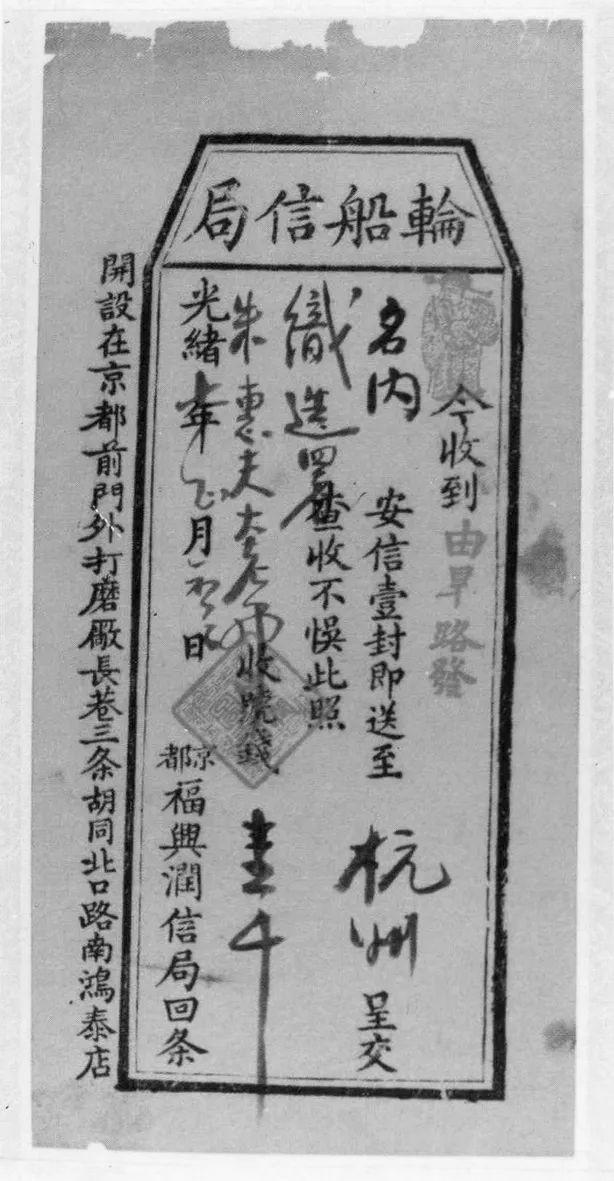 輪船信局
今收到由旱路發
名内 安信壹封即送至杭州呈交
織造署 查收不悞此照
朱惠夫大老爺 收號錢 壹千
光緒 年 月 日 京都福興潤信局回条
開設在京都前門外打磨廠長巷三条胡同北口路南鴻泰店